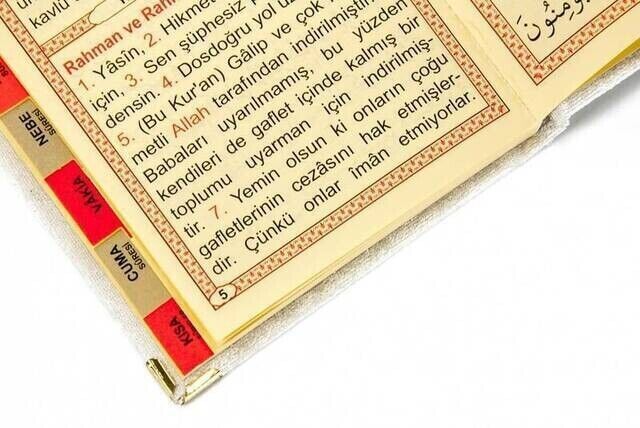 kavlü
Rahman ve Rah
1. Yâsîn, 2. Hikme
için, 3. Sen şüphesiz
densin. 4. Dosdoğru yol
5. (Bu Kur'an) Gâlip ve çok
metli Allah tarafından indirilmiştir.
Babaları uyarılmamış, bu yüzden
kendileri de gaflet içinde kalmış bir
toplumu uyarman için indirilmiş-
tir. 7. Yemin olsun ki onların çoğu
gafletlerinin cezâsını hak etmişler-
dir. Çünkü onlar îmân etmiyorlar.
5
NEBE
SÛRESİ
VAKIA
CUMA
SÛRESİ
KISA